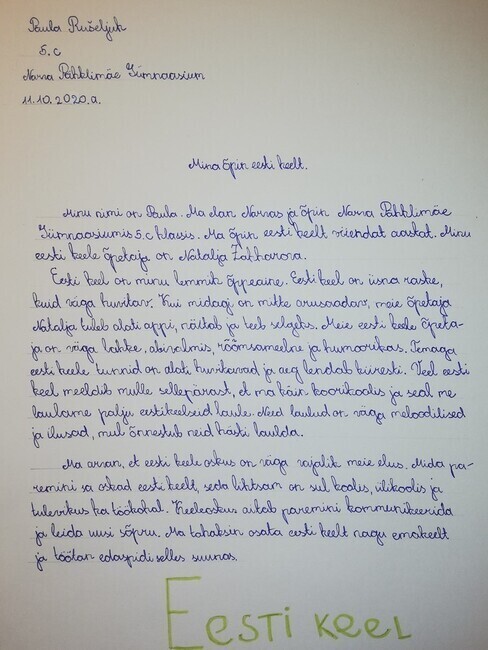 Paula Rušeljuk
5.c
Narva Pähklimäe Gümnaasium
11.10.2020.a.
Mina õpin eesti keelt.
Minu nimi on Paula. Ma elan Narvas ja õpin Narva Pähklimäe
Gümnaasiumis 5.c klassis. Ma õpin eesti keelt viiendat aastat. Minu
eesti keele õpetaja on Natalja Zakharova.
Eesti keel on minu lemmik õppeaine. Eesti keel on üsna raske,
kuid väga huvitav. Kui midagi on mitte arusaadav, meie õpetaja
Natalja tuleb alati appi, näitab ja teeb selgeks. Meie eesti keele õpeta-
ja on väga lahke, abivalmis, rõõmsameelne ja humoorikas. Temaga
eesti keele tunnid on alati huvitavad ja aeg lendab kiiresti. Veel eesti
keel meeldib mulle sellepärast, et ma käin koorikoolis ja seal me
laulame palju eestikeelseid laule. Need laulud on väga meloodilised
ja ilusad, mul õnnestub neid hästi laulda.
Ma arvan, et eesti keele oskus on väga vajalik meie elus. Mida pa-
remini sa oskad eesti keelt, seda lihtsam on sul koolis, ülikoolis ja
tulevikus ka töökohal. Keeleoskus aitab paremini kommunikeerida
ja leida uusi sõpru. Ma tahaksin osata eesti keelt nagu emakeelt
ja töötan edaspidi selles suunas.
EESTI KEEL